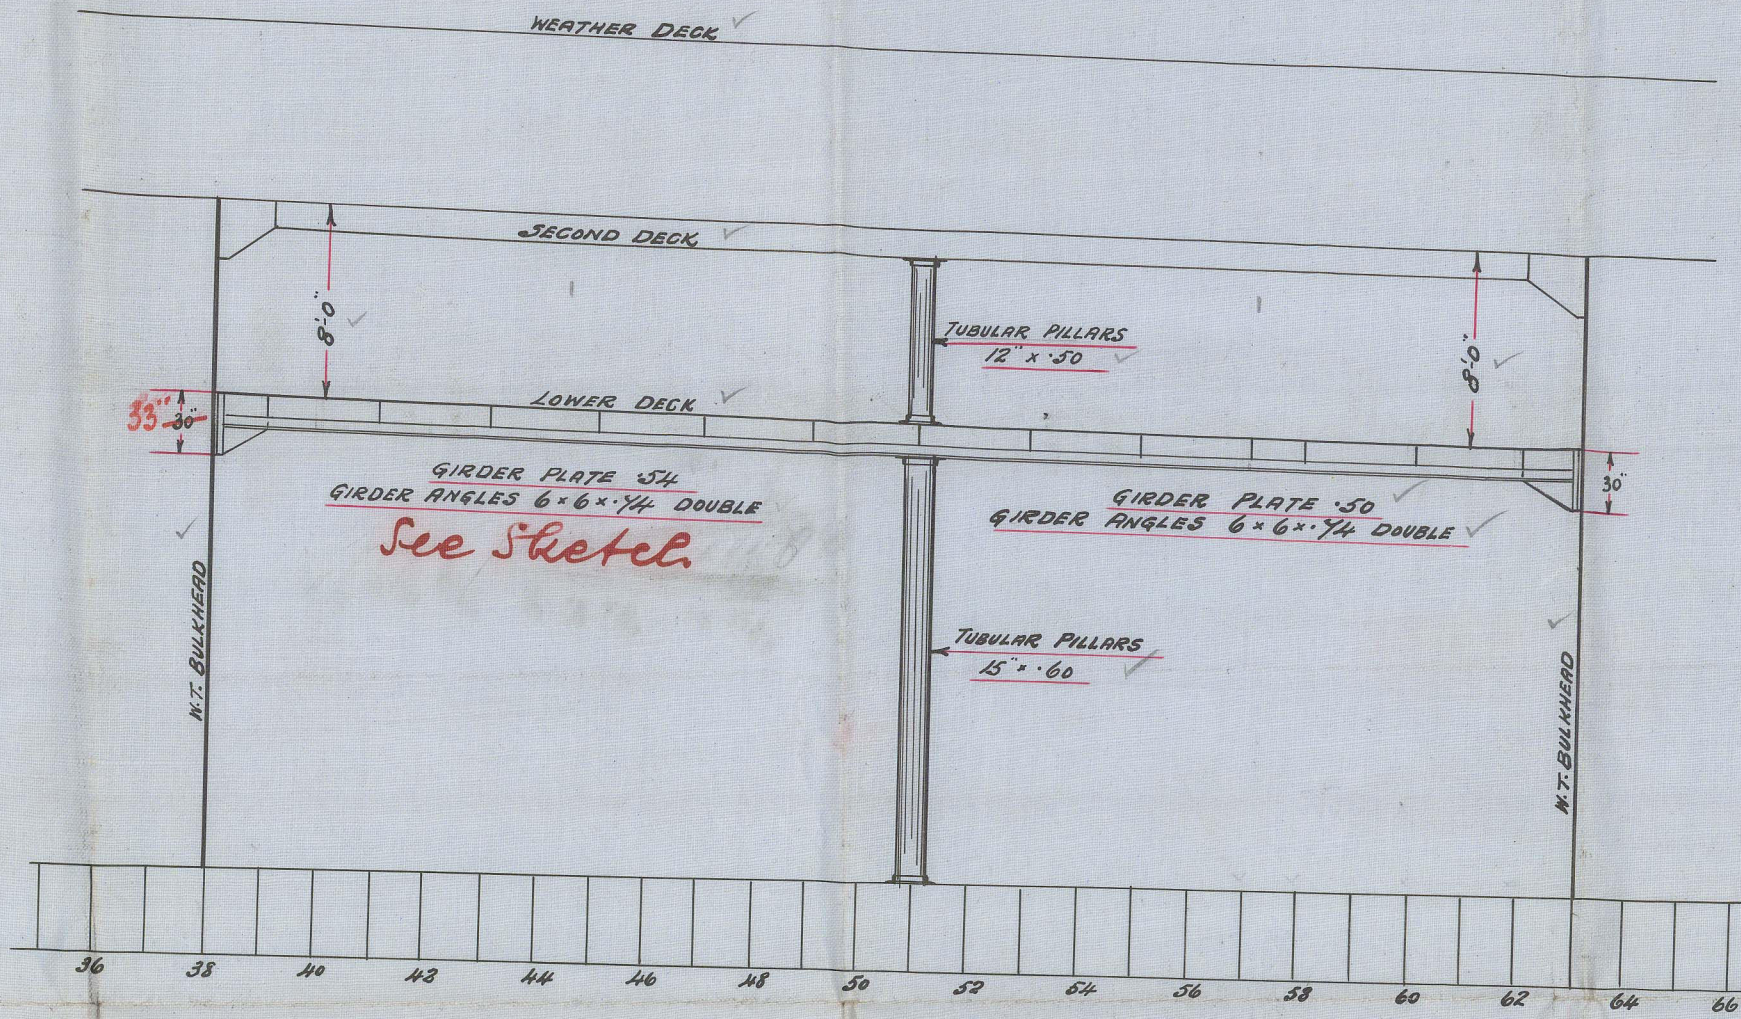 WEATHER DECK
SECOND DECK
8'-0"
TUBULAR PILLARS
12" x .50
8'-0"
33" 30"
LOWER DECK
GIRDER PLATE .54
GIRDER ANGLES 6 x 6 x .74 DOUBLE
See Sketch
GIRDER PLATE .50
GIRDER ANGLES 6 x 6 x .74 DOUBLE
30"
W.T. BULKHEAD
TUBULAR PILLARS
15" x .60
W.T. BULKHEAD
36 38 40 42 44 46 48 50 52 54 56 58 60 62 64 66